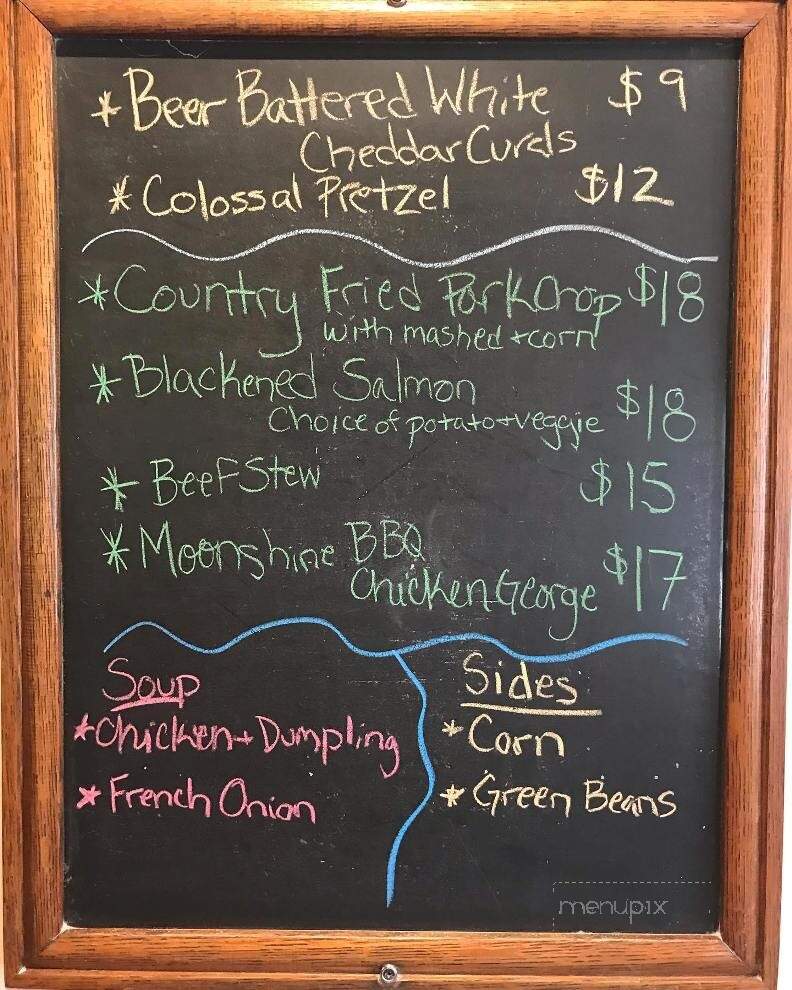 * Beer Battered White $9
Cheddar Curds
* Colossal Pretzel $12
* Country Fried Pork Chop $18
with mashed + corn
* Blackened Salmon
Choice of potato + veggie $18
* Beef Stew $15
* Moonshine BBQ
Chicken George $17
Soup
* Chicken + Dumpling
* French Onion
Sides
* Corn
* Green Beans
menupix